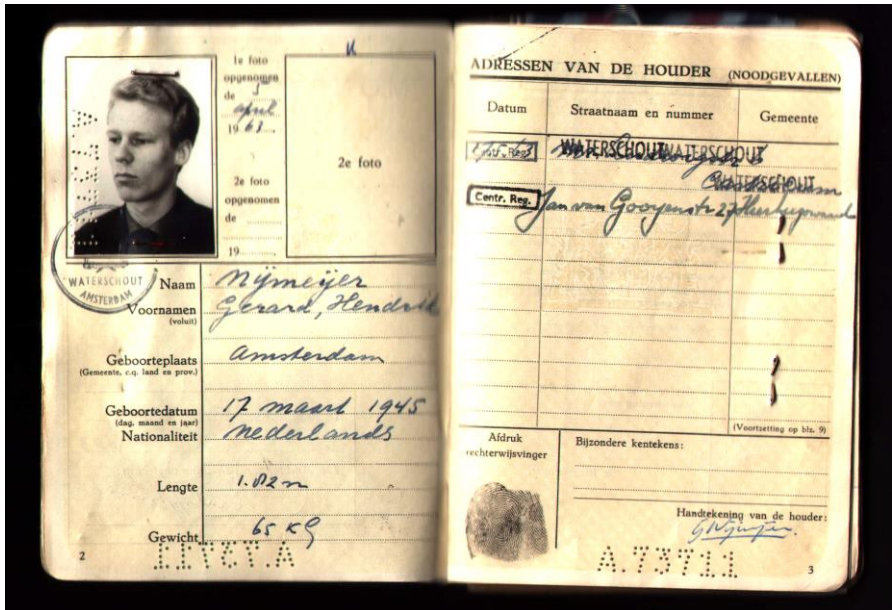 1e foto
opgenomen
de 5
april
1963
2e foto
opgenomen
de
19
2e foto
WATERSCHOUT
AMSTERDAM
Naam Nijmeijer
Voornamen Gerard, Hendrik
(voluit)
Geboorteplaats Amsterdam
(Gemeente, c.q. land en prov.)
Geboortedatum 17 maart 1945
(dag, maand en jaar)
Nationaliteit nederlands
Lengte 1.82 m
Gewicht 65 KG
2
A.73711
ADRESSEN VAN DE HOUDER (NOODGEVALLEN)
Datum Straatnaam en nummer Gemeente
WATERSCHOUT WATERSCHOUT
WATERSCHOUT
Amsterdam
Centr. Reg. Jan van Gooyenstr 27
(Voortzetting op blz. 9)
Afdruk
rechterwijsvinger
Bijzondere kentekens:
Handtekening van de houder:
GNijmeijer.
A.73711
3